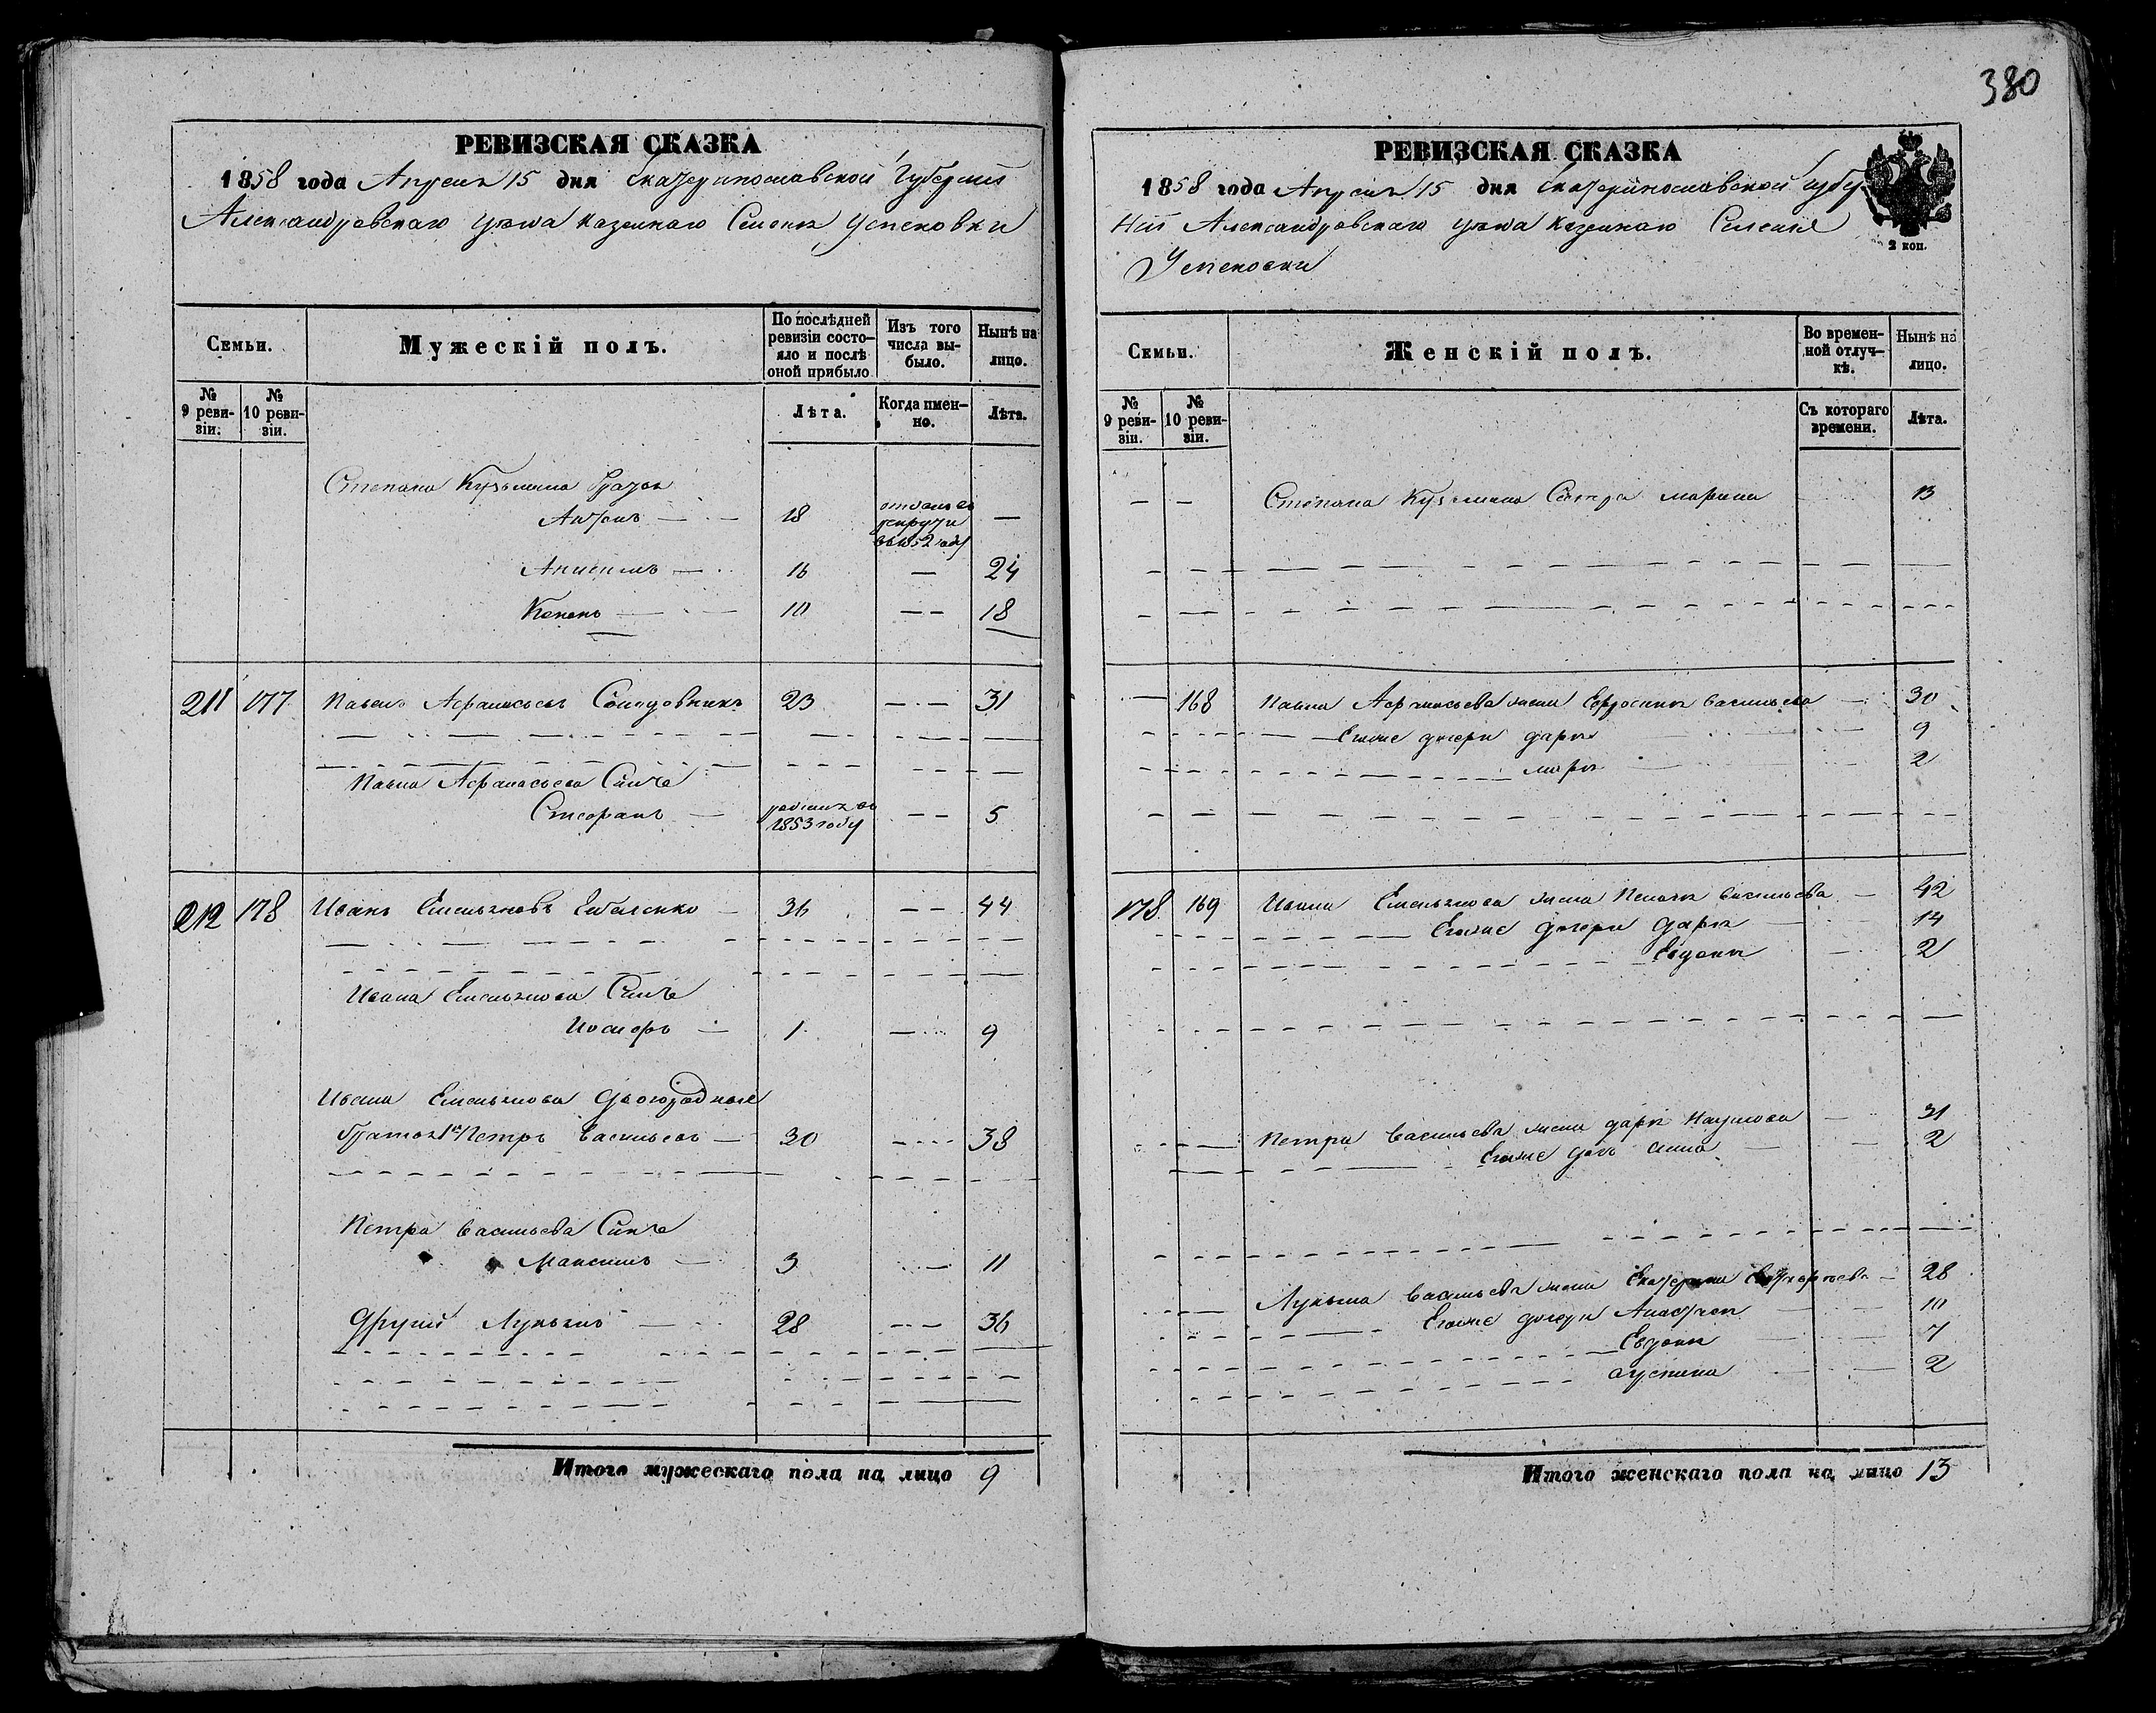 380
РЕВИЗСКАЯ СКАЗКА
1858 года Апреля 15 дня Екатеринославской Губернии
Александровскаго уезда казеннаго Селения Успеновки
Семьи.
Мужескій полъ.
По послѣдней ревизіи состояло и послѣ оной прибыло
Изъ того числа выбыло.
Нынѣ на лицо.
№ 9 ревизіи.
№ 10 ревизіи.
Лѣта.
Когда имен-но.
Лѣта.
Степана Кузьмина
18 отданъ въ рекруты въ 1852 году —
16 — 24
10 — — 18
211 177 Павелъ Афанасьевъ 23 — — 31
Павла Афанасьева Сынъ
Стефанъ — родился въ 1853 году — — 5
212 178 Иванъ Емельяновъ 36 — — 44
Ивана Емельянова Сынъ
Иосифъ — 1 — 9
Ивана Емельянова двоюродные
братья 1й Петръ Васильевъ — 30 — 38
Петра Васильева Сынъ
Максимъ — 3 — 11
другий Лукьянъ — 28 — 36
Итого мужескаго пола на лицо 9
РЕВИЗСКАЯ СКАЗКА
1858 года Апреля 15 дня Екатеринославской Губер
нии Александровскаго уезда казеннаго Селения
Успеновки
2 коп.
Семьи.
Женскій полъ.
Во времен-ной отлуч-кѣ.
Нынѣ на лицо.
№ 9 ревизіи.
№ 10 ревизіи.
Съ котораго времени.
Лѣта.
— — Степана Кузьмина Сестра Марина 13
— 168 Павла Афанасьева жена Ефросинья Васильева — 30
Егоже дочери Дарья 9
Марья 2
178 169 Ивана Емельянова жена Пелагея Васильева — 42
Егоже дочери Дарья 14
Евдокия 2
Петра Васильева жена Дарья Наумова — 31
Егоже дочь Анна — 2
Лукьяна Васильева жена Екатерина — 28
Егоже дочери Анастасия 10
Евдокия 7
2
Итого женскаго пола на лицо 13